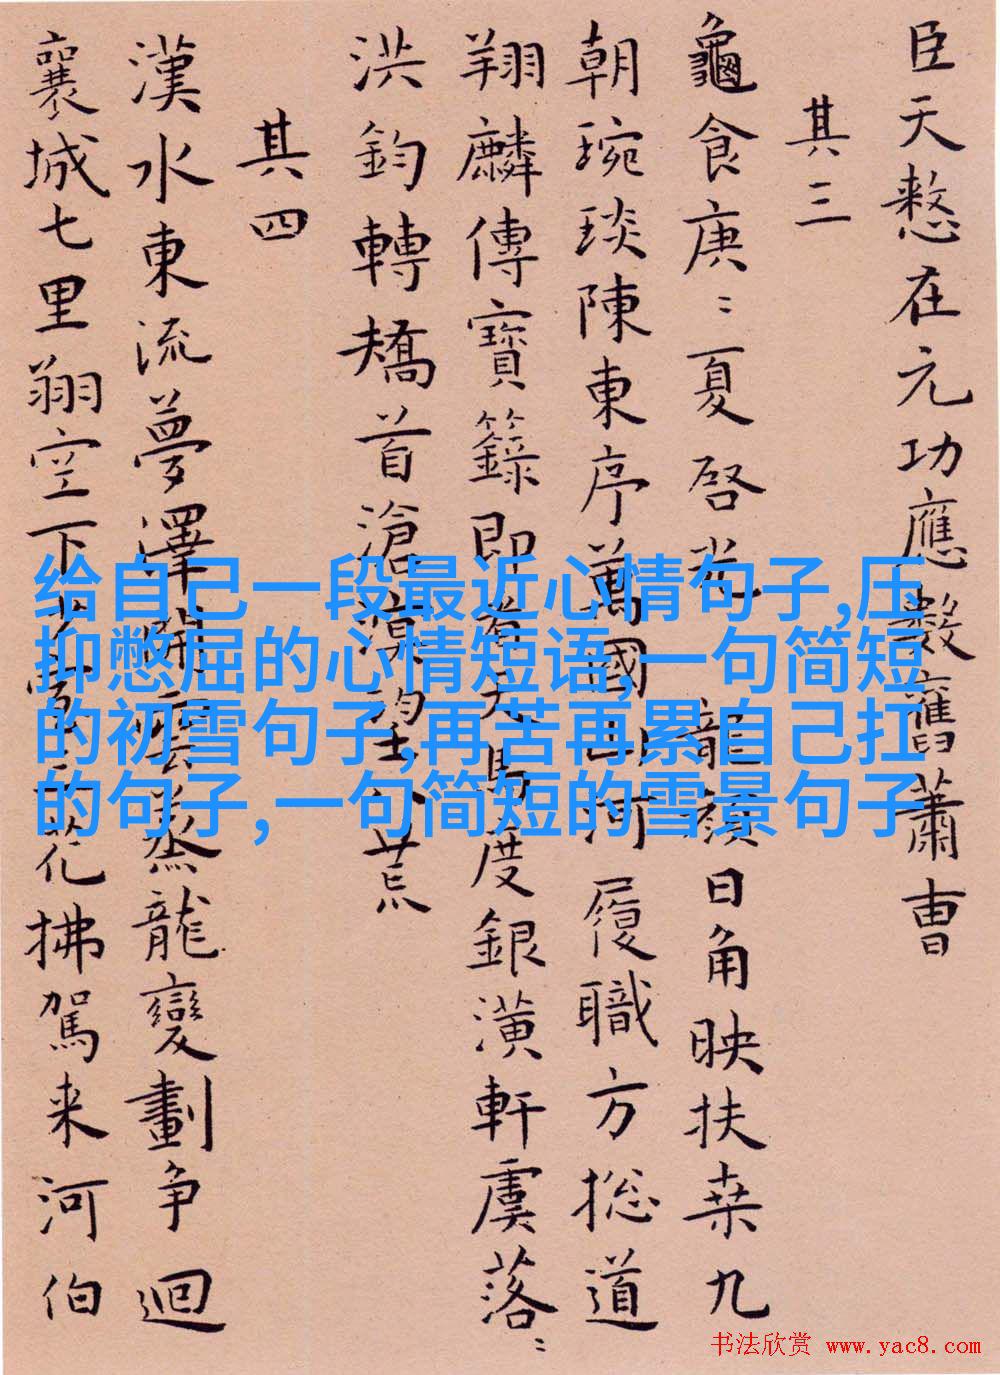 臣天憗在元功應數舊蕭曹
其三
龜食庚〻夏啓光龍顏日角映扶桒九
朝琬琰陳東序萬國山河履職方揔道
翔麟傳寶籙即看天馬度銀潢軒虞落〻
洪鈞轉矯首滄溟望八荒
其四
漢水東流夢澤開雲蒸龍變劃争迴
襄城七里翔空下花拂駕来河伯
给自己一段最近心情句子,压
抑憋屈的心情短语,一句简短
的初雪句子,再苦再累自己扛
的句子,一句简短的雪景句子
书法欣赏 www.yac8.com